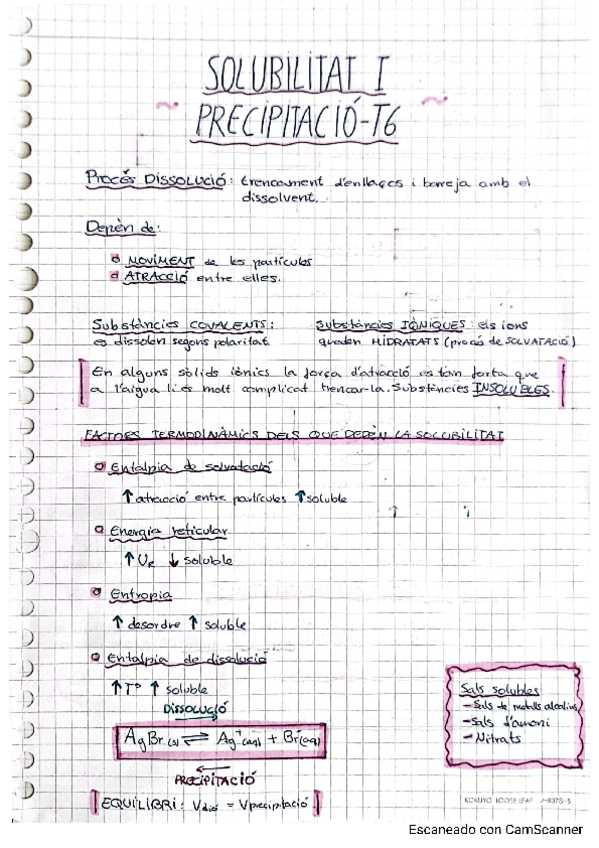 SOLUBILITAT I
PRECIPITACIÓ-T6
Procés DISSOLUCIÓ: trencament d'enllaços i barreja amb el
dissolvent.
Depèn de:
MOVIMENT de les partícules
ATRACCIÓ entre elles.
Substàncies COVALENTS:
es dissolen segons polaritat.
Substàncies IÒNIQUES: els ions
queden HIDRATATS (procés de SOLVATACIÓ)
En alguns sòlids iònics la força d'atracció es tan forta que
a l'aigua li és molt complicat trencar-la. Substàncies INSOLUBLES.
FACTORS TERMODINÀMICS DELS QUE DEPÈN LA SOLUBILITAT
Entalpia de solvatació
↑ atracció entre partícules ↑ soluble
Energia reticular
↑ UR ↓ soluble
Entropia
↑ desordre ↑ soluble
Entalpia de dissolució
↑ Tª ↑ soluble
DISSOLUCIÓ
AgBr (s) ⇌ Ag⁺(aq) + Br⁻(aq)
PRECIPITACIÓ
EQUILIBRI: Vdiss = Vprecipitació
Sals solubles
- Sals de metalls alcalins
- Sals d'amoni
- Nitrats
KOKUYO LOOSE-LEAF
Escaneado con CamScanner